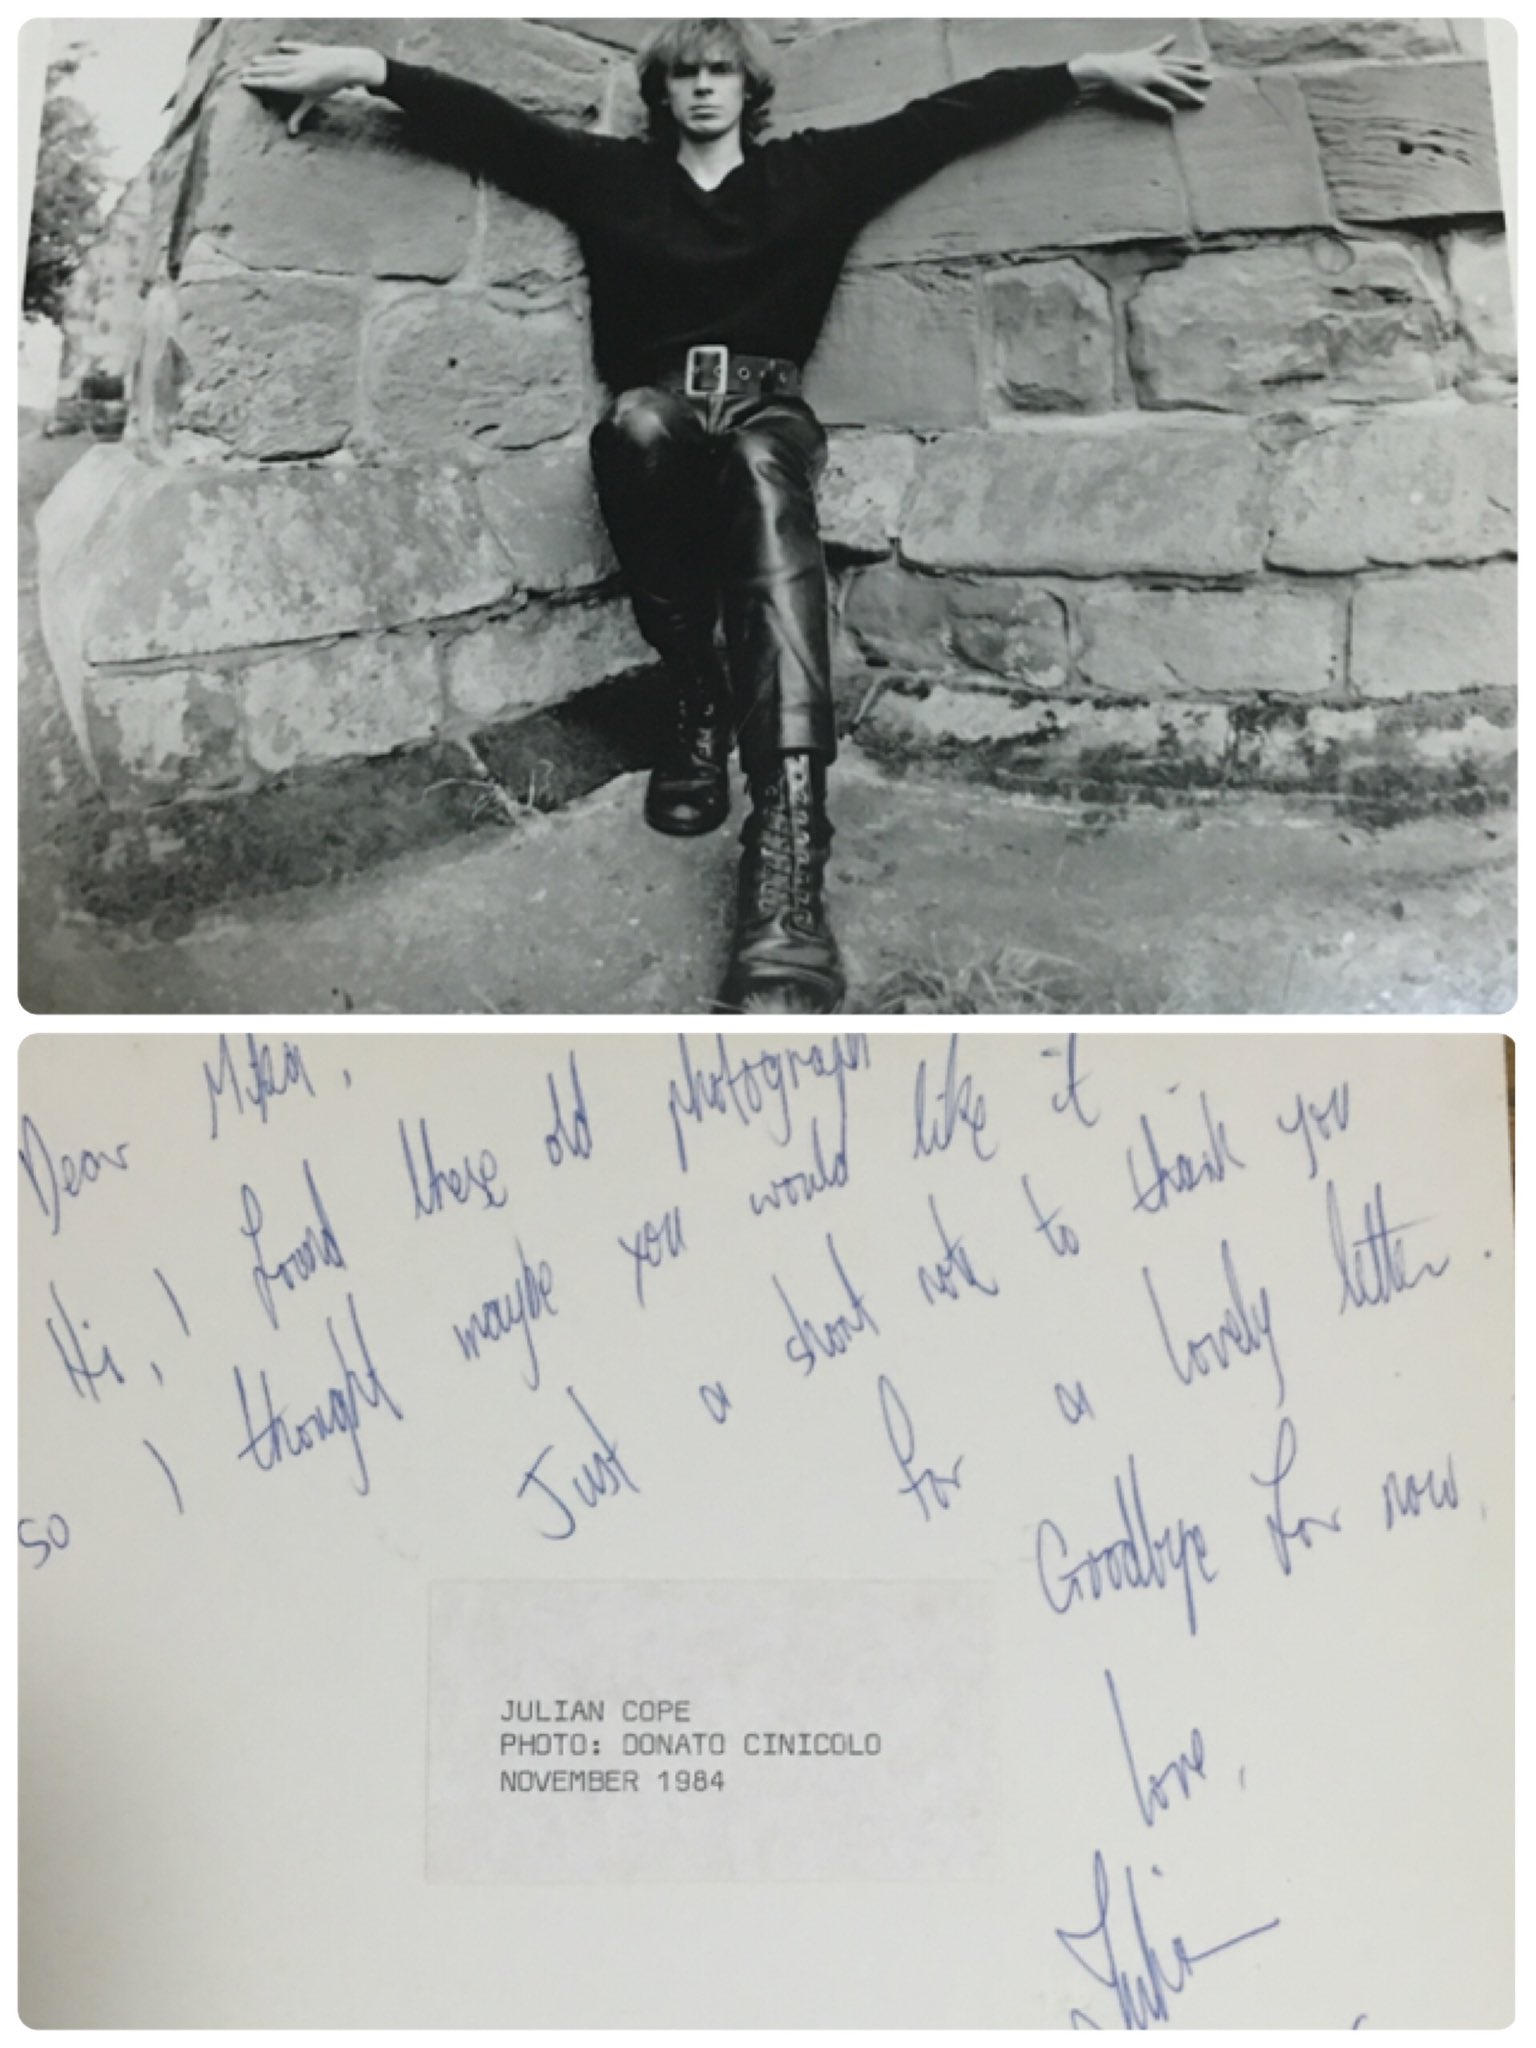 Dear Mika,
Hi, I found these old photograph
so I thought maybe you would like it
Just a short note to thank you
for a lovely letter.
Goodbye for now.
love,
Julian
JULIAN COPE
PHOTO: DONATO CINICOLO
NOVEMBER 1984